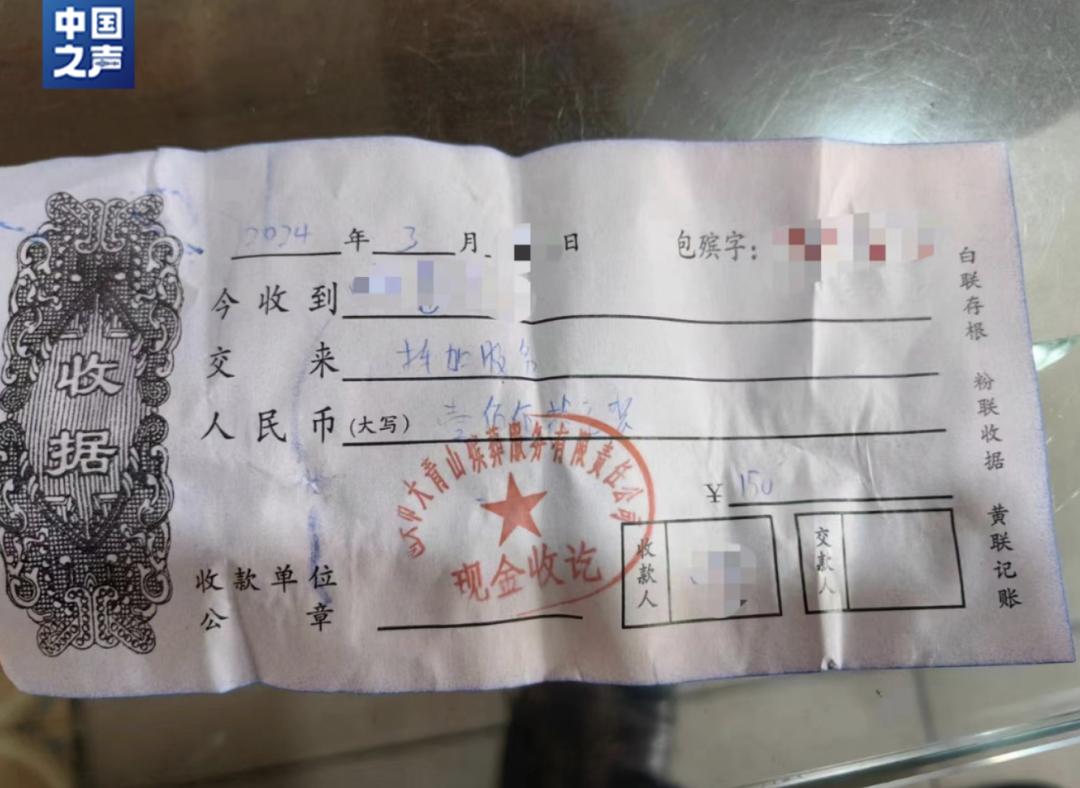 中国
之声
收据
2024年3月 日
包殡字：
今收到
交来 抬加服务
人民币(大写) 壹佰伍拾元
¥ 150
大青山殡葬服务有限责任公司
现金收讫
收款单位
公章
收款人
交款人
白联存根 粉联收据 黄联记账